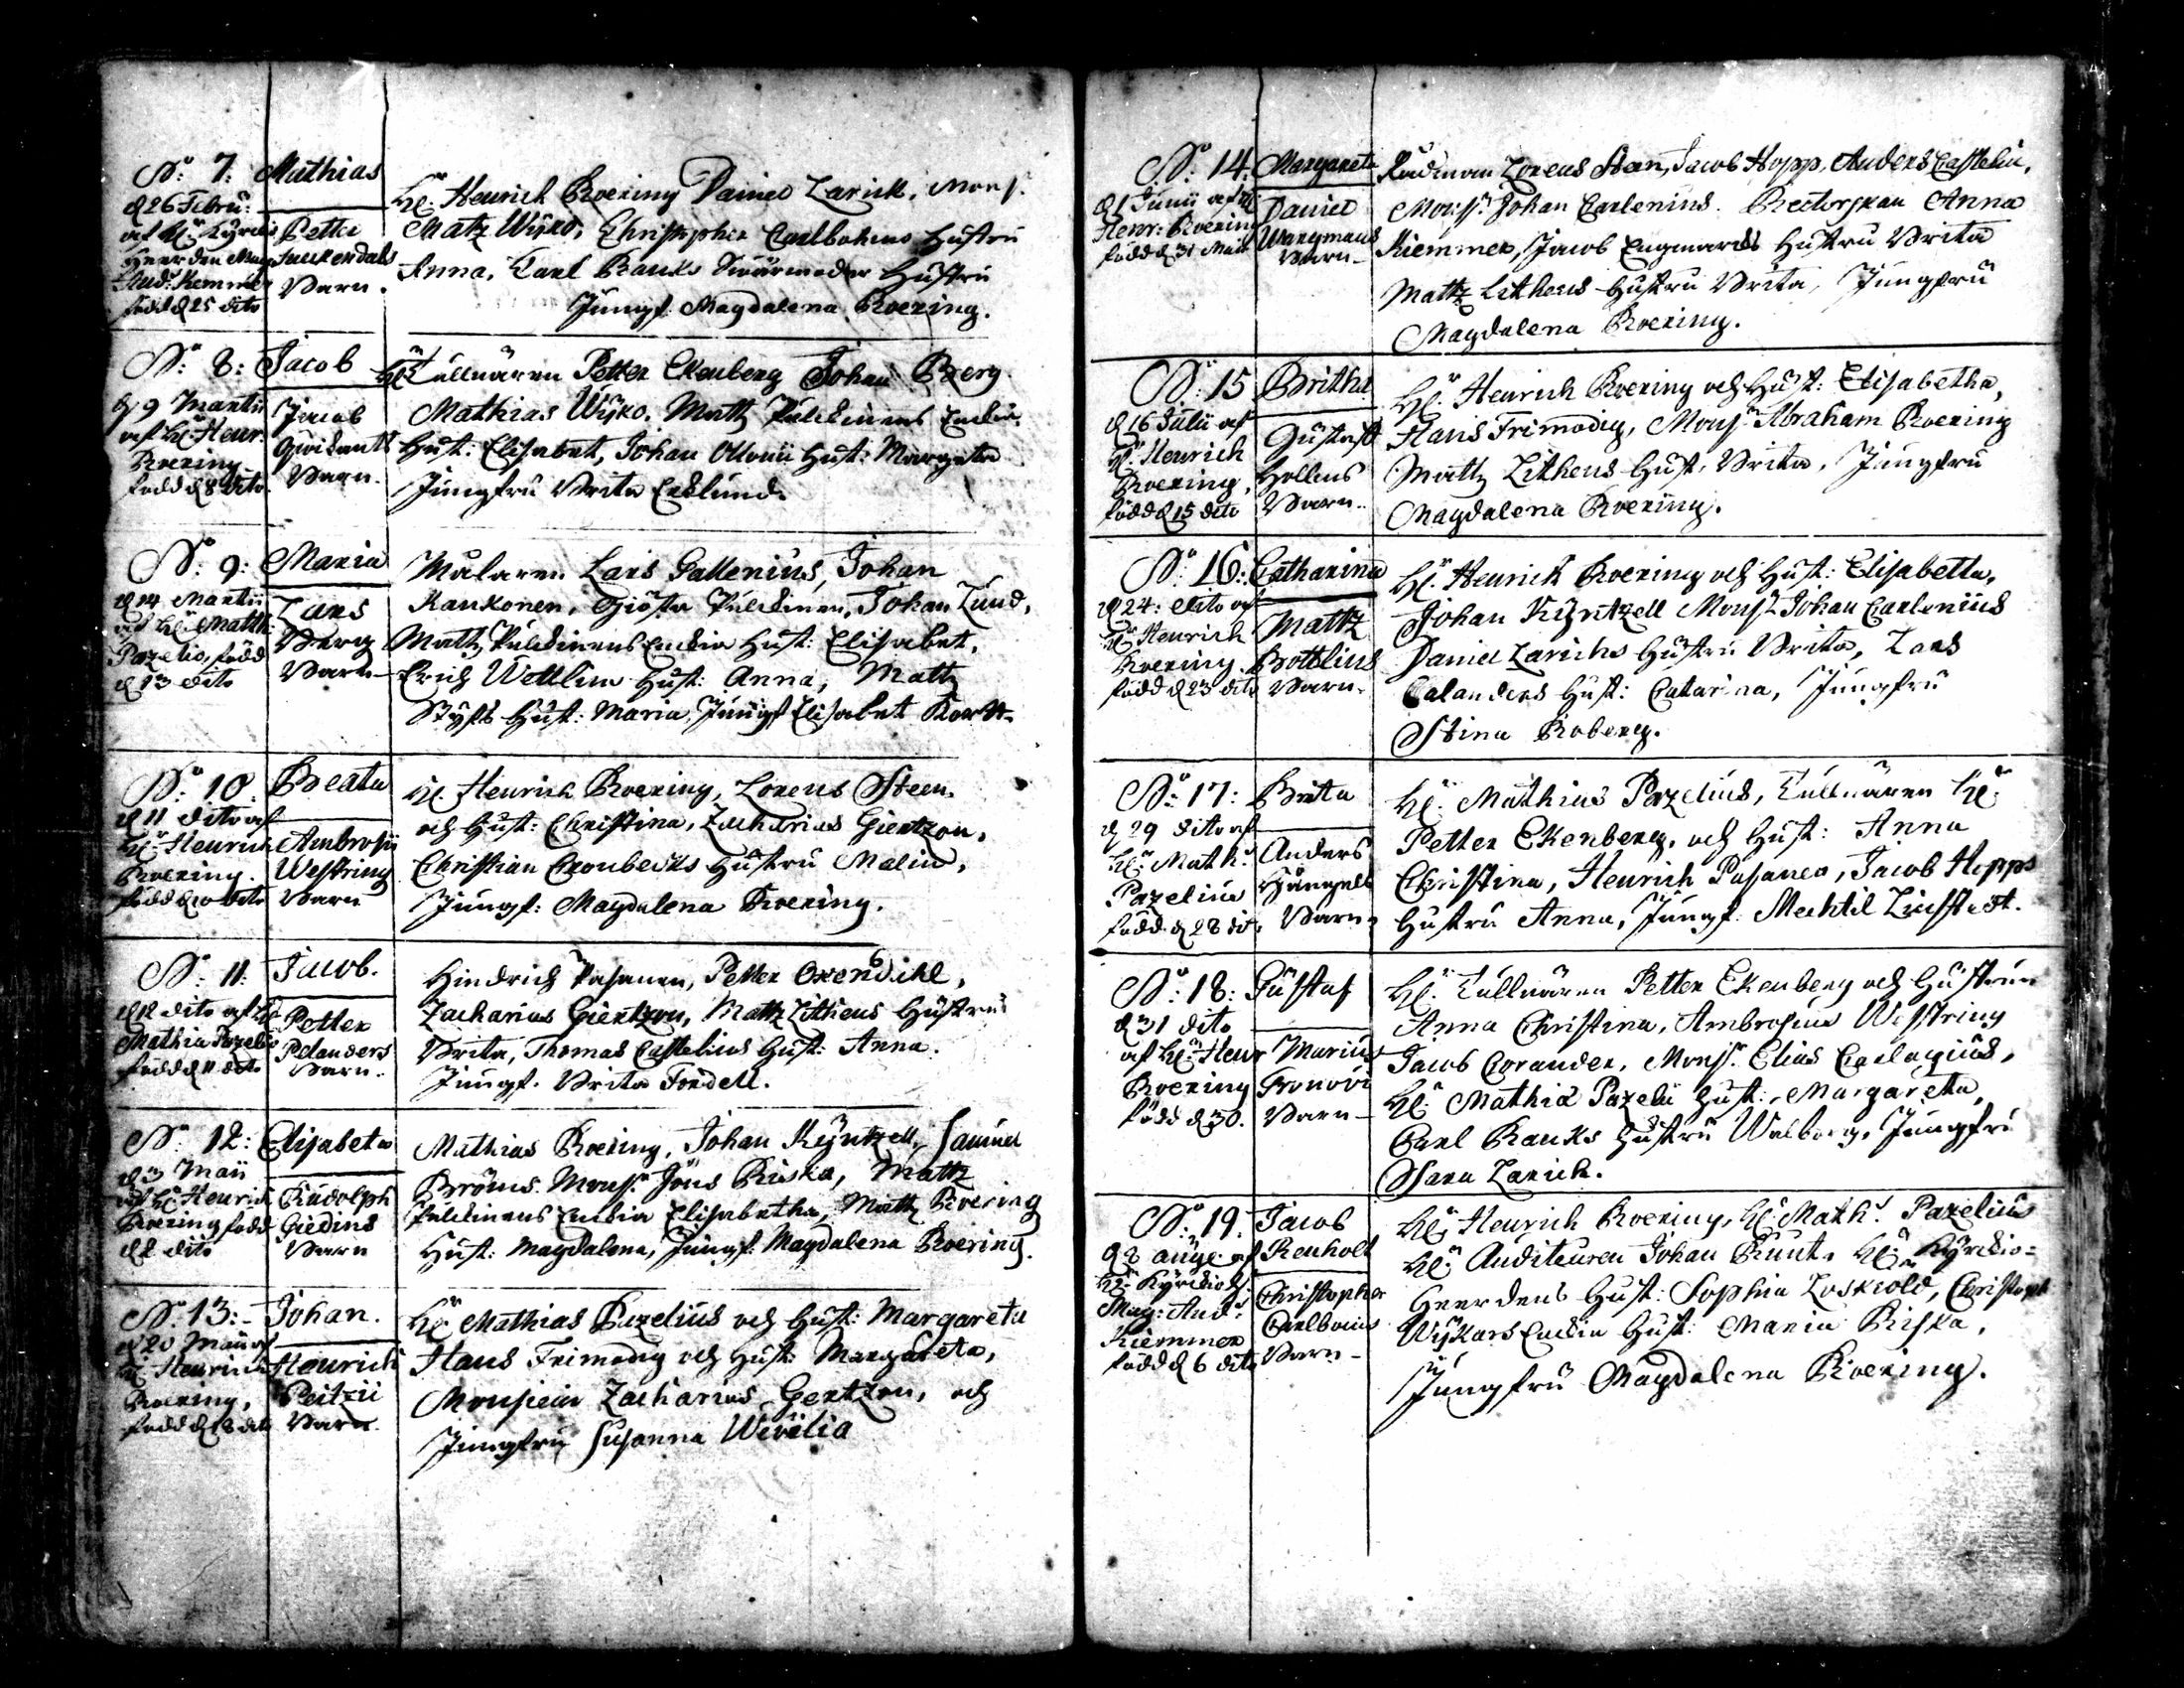 N:o 7:
d 26 Febru:
af H:r Kyrckio
Heerden Mag:
And: Kemmer
född d 25 dito
Mathias
Petter
Juukendals
Barn.
H:r Henrich Roering Daniel Larick, Mons:r
Matz Wijko, Christopher Carlbohms Hustru
Anna, Karl Rauks Swärmoder Hustru
Jungf: Magdalena Roering.
N:o 8:
d 9 Martii
af H:r Henr:
Roering
född d 8 dito.
Jacob
Jacob
Barn.
H:r Tullnären Petter Ekenberg Johan Berg
Mathias Wijko. Matz Pulckinens Enckia
Hust: Elisabet, Johan Ottonii Hust: Margeta
Jungfru Brita Ecklund.
N:o 9:
d 14 Martii
af H:r Matth:
Pazelio, född
d 13 dito
Maria
Lars
Berg
Barn
Målaren Lars Gallenius, Johan
Kaukonen, Giösta Pulckinen, Johan Lund,
Matz Pulckinens Enckia Hust: Elisabet,
Erich Wettlins Hust: Anna, Mattz
Styfs Hust: Maria, Jungf Elisabet Kortt.
N:o 10.
d 11 dito af
H:r Henrich
Roering.
född d 10 dito
Beata
Ambrosii
Westring
Barn
H:r Henrich Roering, Lorens Steen.
och Hust: Christina, Zacharias Giertzon,
Christian Cronbecks Hustru Malin,
Jungf: Magdalena Roering.
N:o 11:
d 12 dito af H:r
Mathia Pazelio
född d 11 dito
Jacob.
Petter
Pelanders
Barn.
Hindrich Pasanen, Petter Oxendihl,
Zacharias Giertzon, Mattz Litheus Hustru
Brita, Thomas Castelius Hust: Anna.
Jungf. Brita Fordell.
N:o 12:
d 3 Maii
af H:r Henrich
Roering född
d 2 dito
Elisabeta
Rudolph
Giedins
Barn
Mathias Roering, Johan Kyntzell, Samuel
Bröms. Mons:r Jöns Riska, Mattz
Pulckinens Enckia Elisabetha, Mattz Roering
Hust: Magdalena, Jungf: Magdalena Roering.
N:o 13:
d 20 Maii af
H:r Henrich
Roering,
född d 18 dito
Johan.
Henrich
Peitzii
Barn.
H:r Mathias Pazelius och Hust: Margareta
Hans Frimodig och Hust: Margareta,
Monsieur Zacharias Gertzon, och
Jungfru Susanna Wivilia
N:o 14.
d 1 Junii af H:r
Henr: Roering
född d 31 Maii
Margareta
Daniel
Wargmans
Barn
Rådman Lorens Stan, Jacob Hopp, Anders Castelin,
Mons:r Johan Carlenius. Rectorskan Anna
Kiemmer, Jacob Engmarcks Hustru Brita
Mattz Litheus Hustru Brita, Jungfru
Magdalena Roering.
N:o 15
d 16 Julii af
H:r Henrich
Roering,
född d 15 dito
Britha
Gustaf
Hollens
Barn.
H:r Henrich Roering och Hust: Elisabetha,
Hans Frimodig, Mons:r Abraham Roering
Mattz Litheus Hust. Brita, Jungfru
Magdalena Roering.
N:o 16:
d 24: dito af
H:r Henrich
Roering.
född d 23 dito
Catharina
Mattz
Bottlius
Barn.
H:r Henrich Roering och Hust: Elisabetta,
Johan Kyntzell Mons:r Johan Carlenius
Daniel Larichs Hustru Brita, Lars
Calanders Hust: Catarina, Jungfru
Stina Roberg.
N:o 17:
d 29 dito af
H:r Math:
Pazelius
född d 28 dit.
Brita
Anders
Barn
H:r Mathias Pazelius, Tullnären H:r
Petter Ekenberg, och Hust: Anna
Christina, Henrich Pasanen, Jacob Hopps
Hustru Anna, Jungf: Mechtil Lindstedt.
N:o 18:
d 31 dito
af H:r Henr
Roering
född d 30.
Gustaf
Marius
Gronovi
Barn
H:r Tullnären Petter Ekenberg och Hustrun
Anna Christina, Ambrosius Westring
Jacob Corander, Mons:r Elias Carlagius,
H:r Mathiæ Pazelii Hust: Margareta,
Carl Rauks Hustru Walborg, Jungfru
Sara Larich.
N:o 19.
d 8 aug: af
H:r Kyrckioh:
Mag: And:
Kiemmer
född d 6 dito
Jacob
Renholt
Christopher
Carlboms
Barn
H:r Henrich Roering, H:r Math: Pazelius
H:r Auditeuren Johan Runt, H:r Kyrckio=
Heerdens Hust: Sophia Loskiöld, Christoph
Wijkars Enckia Hust: Maria Riska,
Jungfru Magdalena Roering.